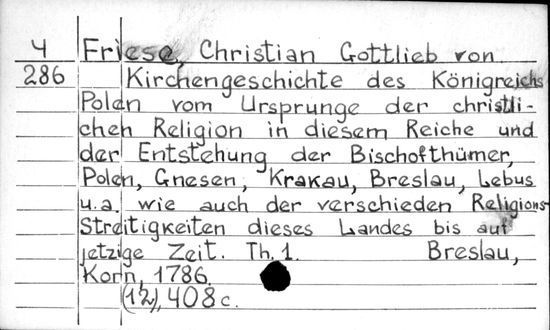 4 Friese, Christian Gottlieb von
286 Kirchengeschichte des Königreichs
Polen vom Ursprunge der christli-
chen Religion in diesem Reiche und
der Entstehung der Bischofthümer,
Polen, Gnesen, Krakau, Breslau, Lebus
u.a. wie auch der verschieden Religions-
Streitigkeiten dieses Landes bis auf
jetzige Zeit. Th. 1. Breslau,
Korn, 1786.
(12), 408 c.